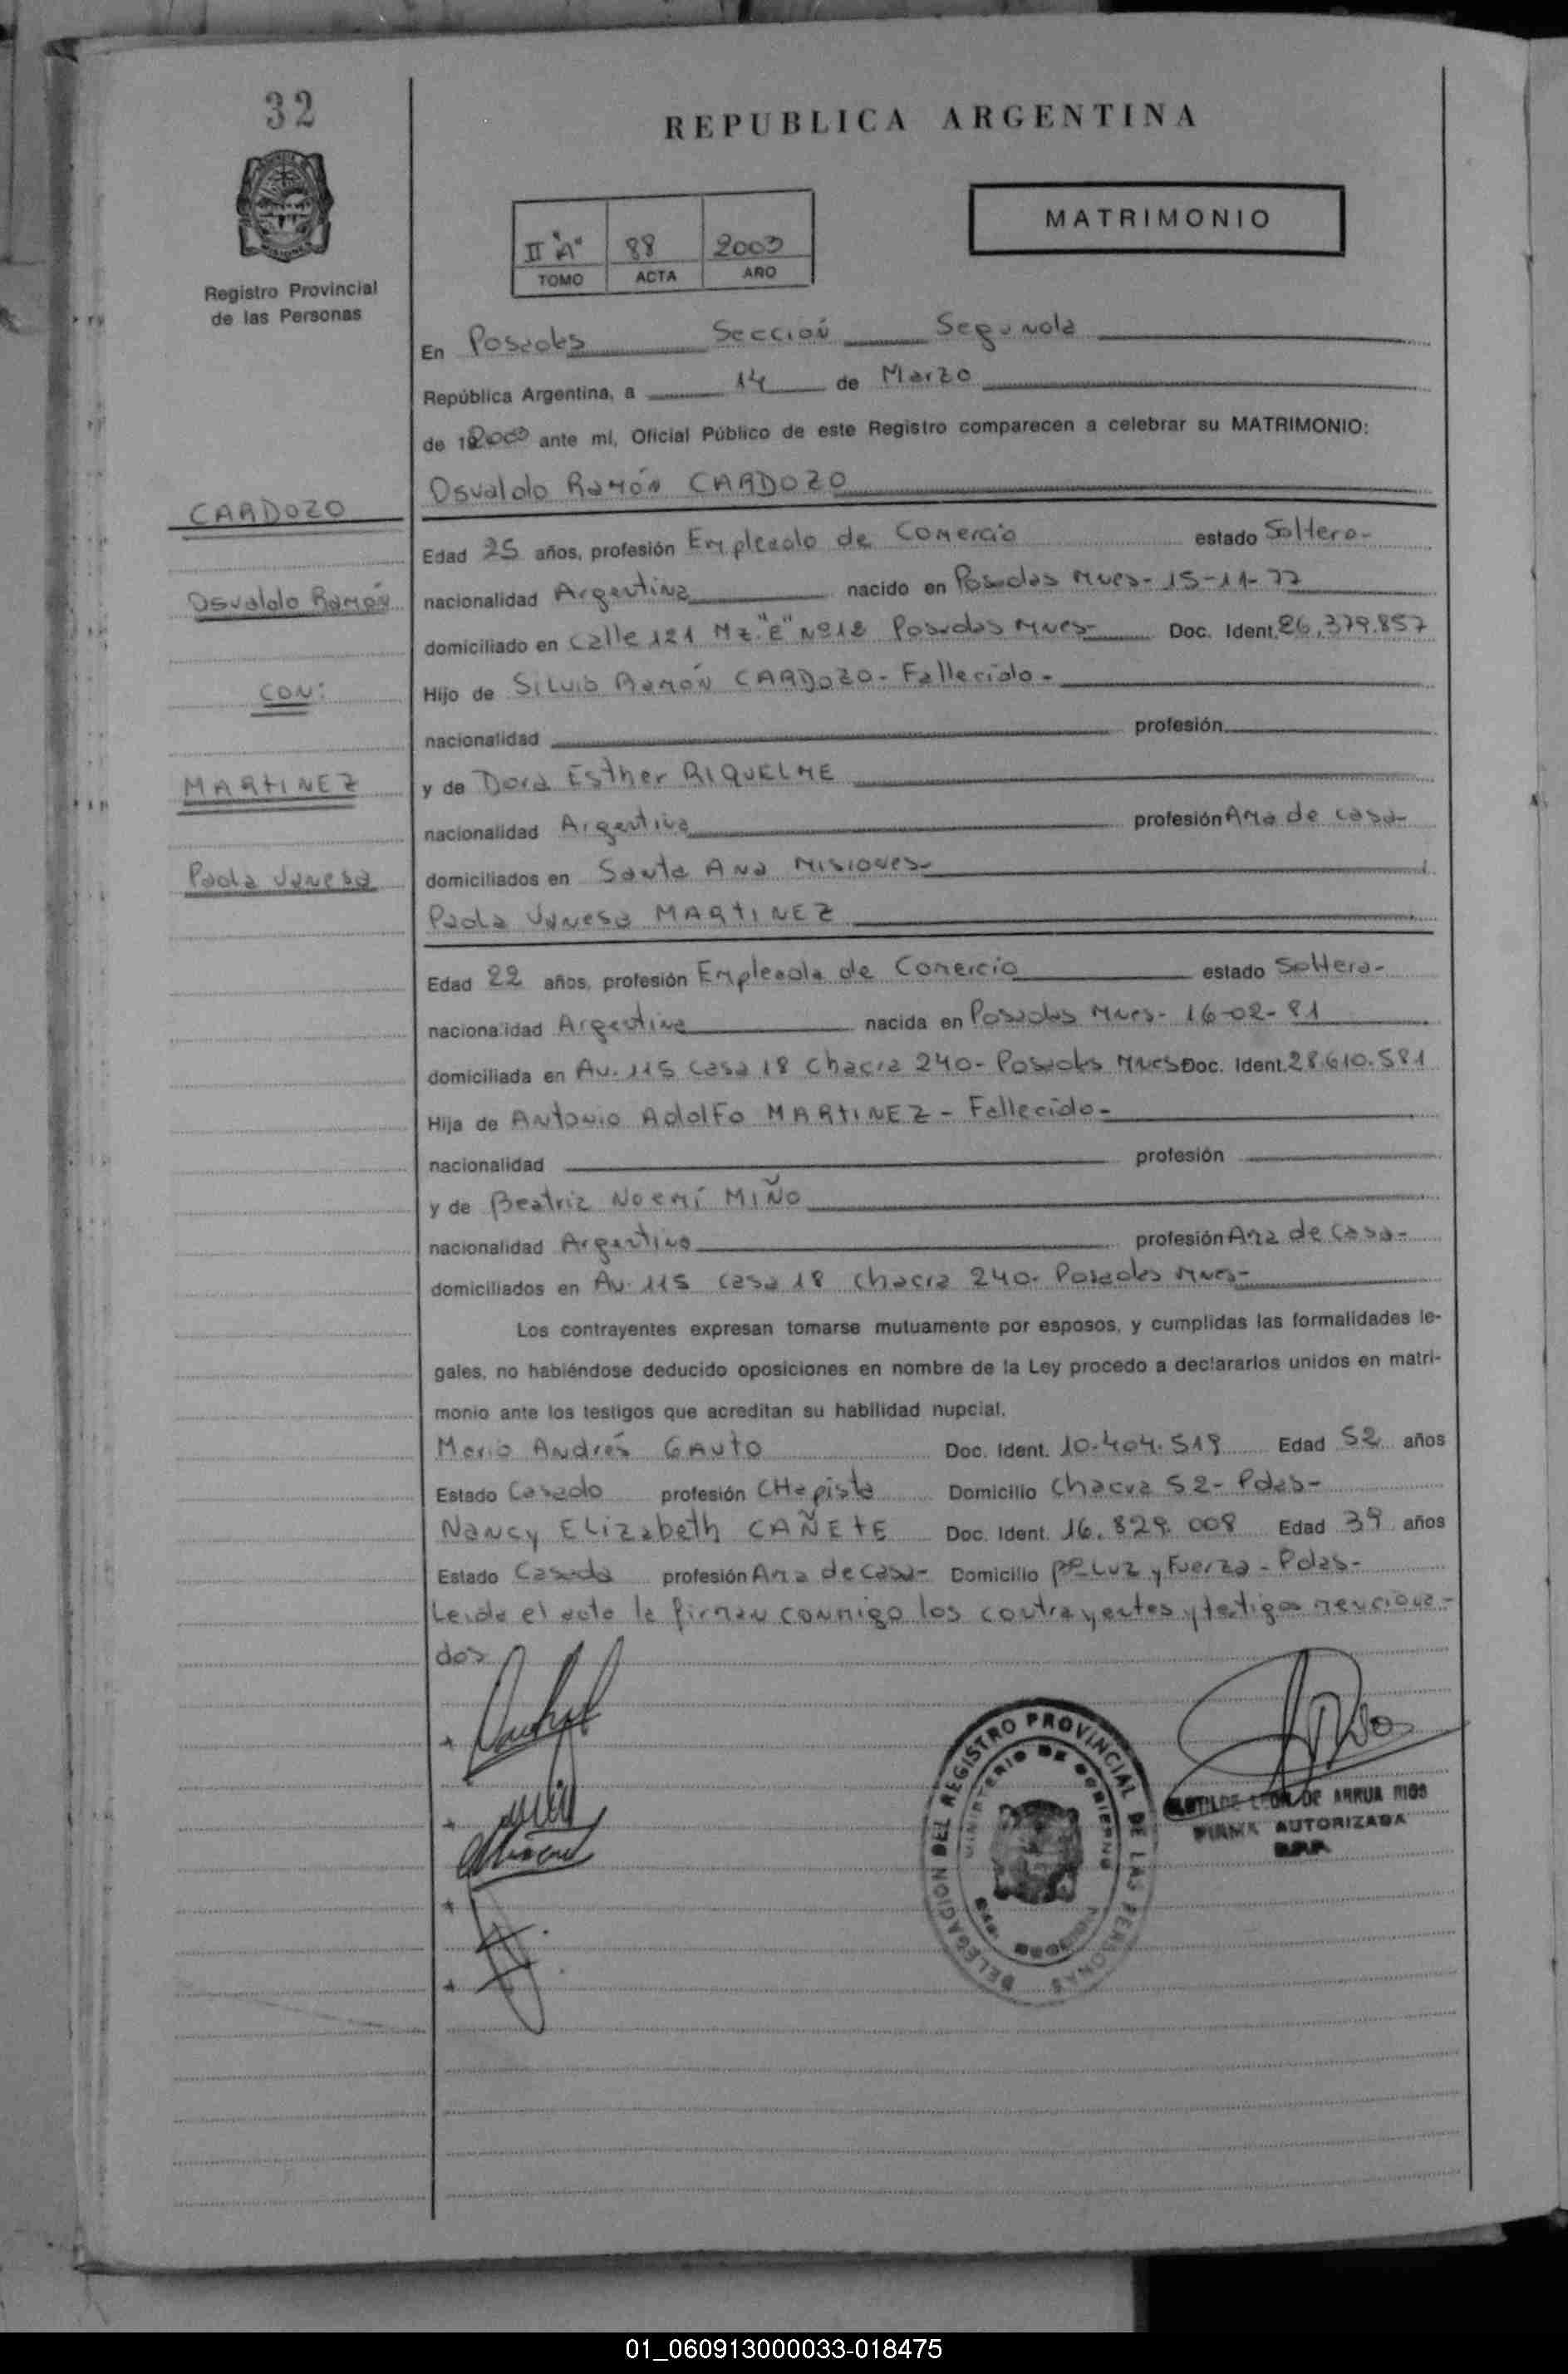 32
REPUBLICA ARGENTINA
MATRIMONIO
II "A" 88 2003
TOMO ACTA AÑO
Registro Provincial
de las Personas
En Posadas Sección Segunda
República Argentina, a 14 de Marzo
de 2003 ante mí, Oficial Público de este Registro comparecen a celebrar su MATRIMONIO:
CARDOZO
Osvaldo Ramón CARDOZO
Edad 25 años, profesión Empleado de Comercio estado Soltero-
Osvaldo Ramón
nacionalidad Argentina nacido en Posadas Mnes- 15-11-77
domiciliado en Calle 121 Mz."E" Nº18 Posadas Mnes- Doc. Ident. 26.379.857
CON:
Hijo de Silvio Ramón CARDOZO- Fallecido-
nacionalidad profesión
MARTINEZ
y de Dora Esther RIQUELME
nacionalidad Argentina profesión Ama de casa-
Paola Vanesa
domiciliados en Santa Ana Misiones-
Paola Vanesa MARTINEZ
Edad 22 años, profesión Empleada de Comercio estado Soltera-
nacionalidad Argentina nacida en Posadas Mnes- 16-02-81
domiciliada en Av. 115 Casa 18 Chacra 240- Posadas Mnes Doc. Ident. 28.610.581
Hija de Antonio Adolfo MARTINEZ - Fallecido-
nacionalidad profesión
y de Beatriz Noemí MIÑO
nacionalidad Argentina profesión Ama de Casa-
domiciliados en Av. 115 Casa 18 Chacra 240- Posadas Mnes-
Los contrayentes expresan tomarse mutuamente por esposos, y cumplidas las formalidades le-
gales, no habiéndose deducido oposiciones en nombre de la Ley procedo a declararlos unidos en matri-
monio ante los testigos que acreditan su habilidad nupcial.
Mario Andrés GAUTO Doc. Ident. 10.404.519 Edad 52 años
Estado Casado profesión CHapista Domicilio Chacra 52- Pdas-
Nancy Elizabeth CAÑETE Doc. Ident. 16.829.008 Edad 39 años
Estado Casada profesión Ama de Casa- Domicilio Bº Luz y Fuerza - Pdas-
Leida el acta la firman conmigo los contrayentes y testigos menciona-
dos
DELEGACION DEL REGISTRO PROVINCIAL DE LAS PERSONAS
MINISTERIO DE GOBIERNO
LEON DE ARRUA RIOS
FIRMA AUTORIZADA
01_060913000033-018475